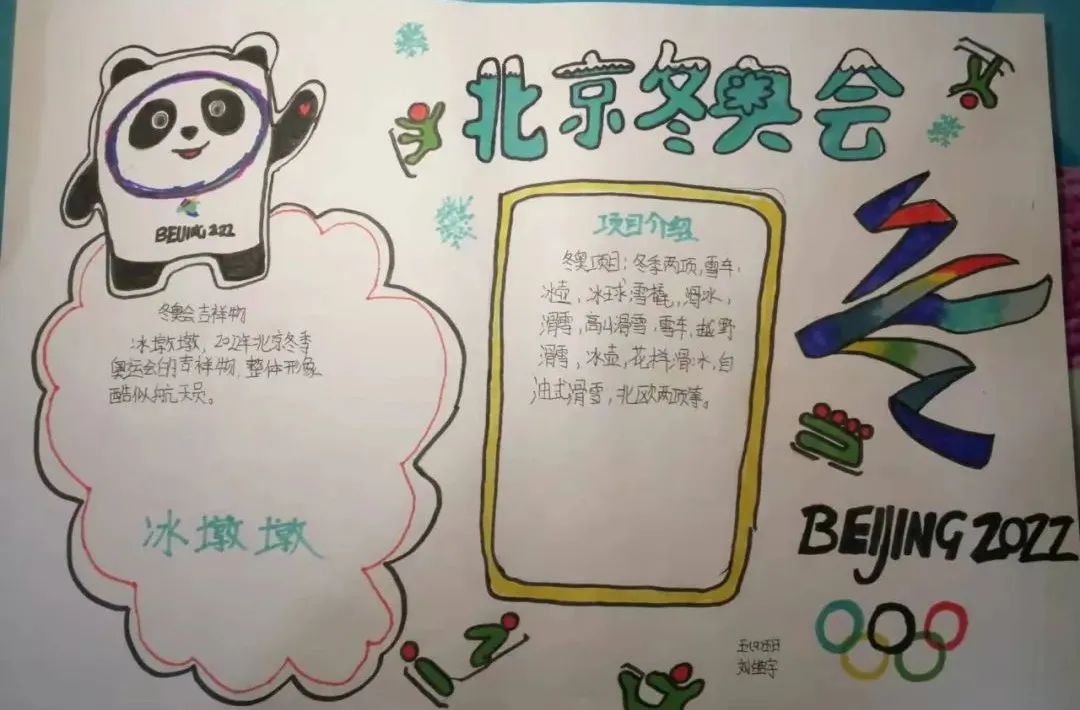 北京冬奥会
BEIJING 2022
冬奥会吉祥物
冰墩墩，2022年北京冬季
奥运会的吉祥物，整体形象
酷似航天员。
冰墩墩
项目介绍
冬奥项目：冬季两项，雪车，
冰壶，冰球，雪橇，滑冰，
滑雪，高山滑雪，雪车，越野
滑雪，冰壶，花样滑冰，自
油式滑雪，北欧两项等。
BEIJING 2022